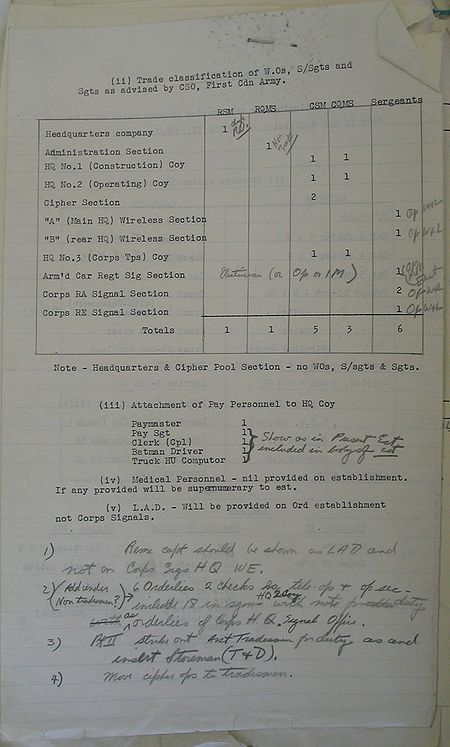 (ii) Trade classification of W.Os, S/Sgts and
Sgts as advised by CSO, First Cdn Army.
RSM RQMS CSM CQMS Sergeants
Headquarters company 1
Administration Section 1 Non trade
HQ No.1 (Construction) Coy 1 1
HQ No.2 (Operating) Coy 1 1
Cipher Section 2
"A" (Main HQ) Wireless Section 1 Op W+L
"B" (rear HQ) Wireless Section 1 Op W+L
HQ No.3 (Corps Tps) Coy 1 1
Arm'd Car Regt Sig Section Electrician (or Op or IM) 1
Corps RA Signal Section 2 Op W+L
Corps RE Signal Section 1 Op W+L
Totals 1 1 5 3 6
Note - Headquarters & Cipher Pool Section - no WOs, S/sgts & Sgts.
(iii) Attachment of Pay Personnel to HQ Coy
Paymaster 1
Pay Sgt 1
Clerk (Cpl) 1 Show as in Present Est
Batman Driver 1 included in body of est
Truck HU Computor 1
(iv) Medical Personnel - nil provided on establishment.
If any provided will be supernumerary to est.
(v) L.A.D. - Will be provided on Ord establishment
not Corps Signals.
1) Reme capt should be shown as LAD and
not on Corps Sigs HQ WE.
2) (Add under 6 Orderlies 2 checks tele-op + op sec.
Non tradesmen?) include 18 in HQ 2 Coy not for duty
as orderlies of Corps H Q Signal Office.
3) Pt II strike out Asst Tradesmen for duty as and
insert Storeman (T & D).
4) Move cipher ops to tradesmen.